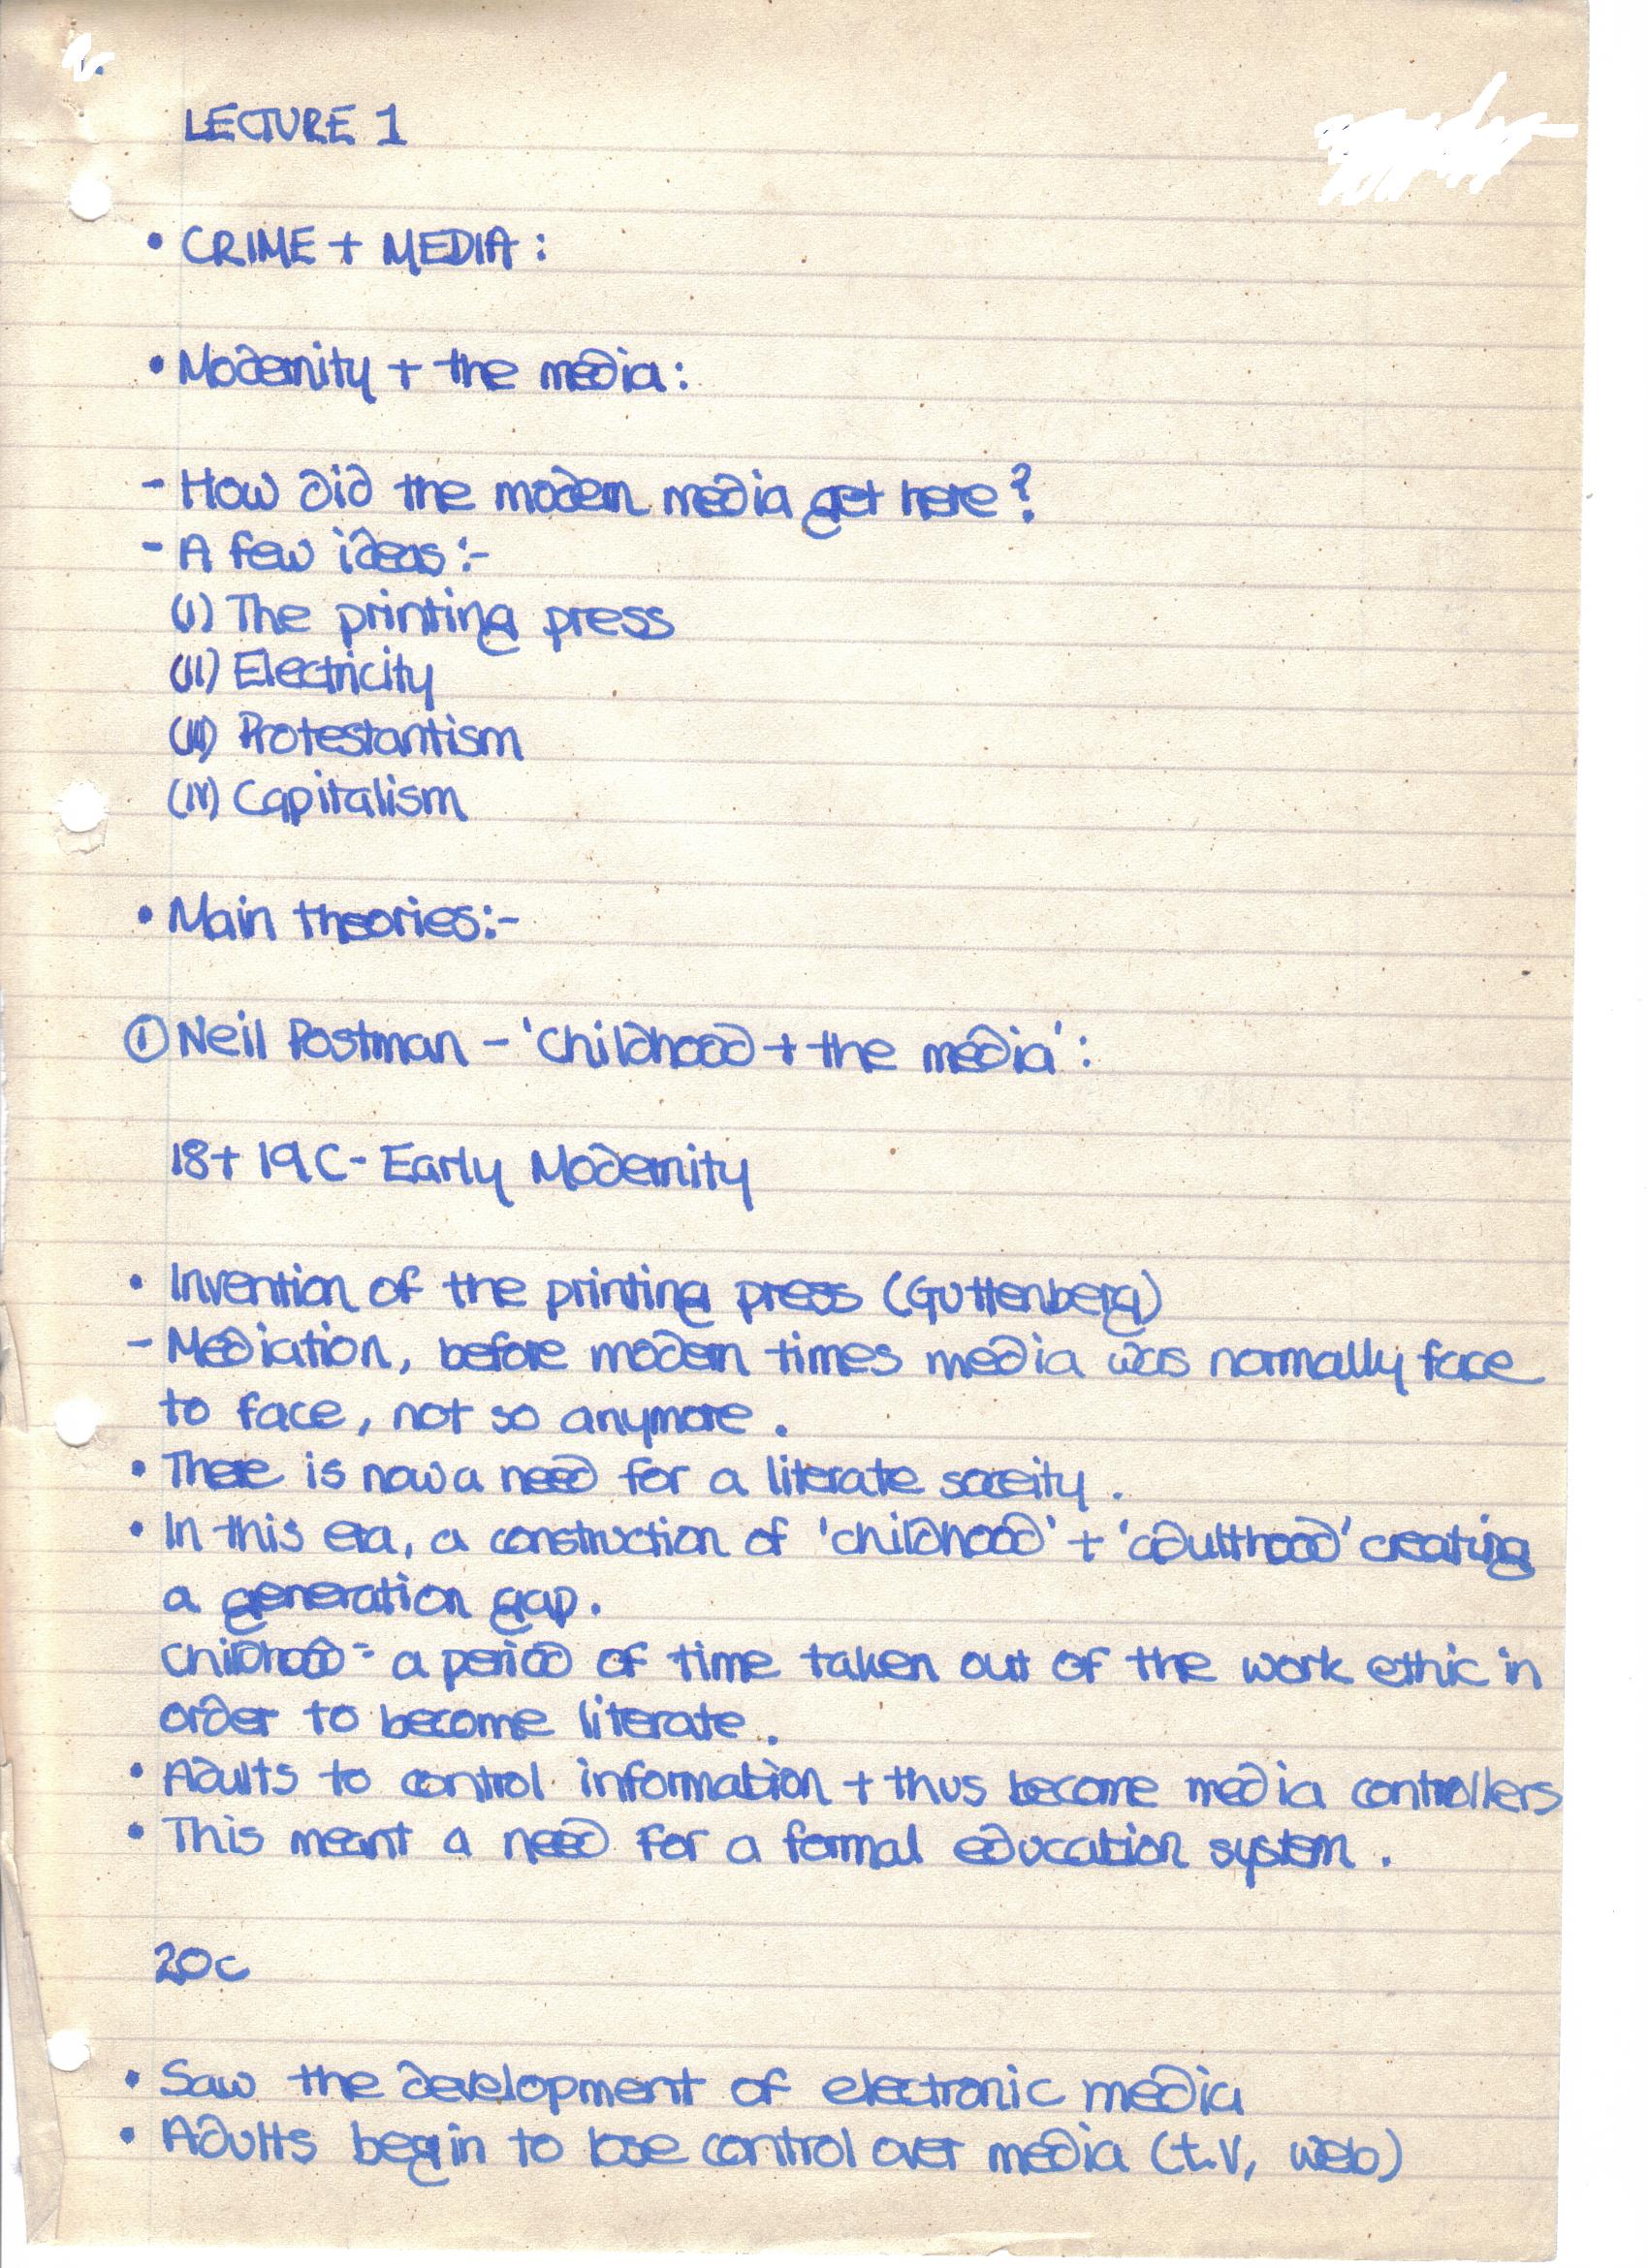 LECTURE 1
• CRIME + MEDIA :
• Modernity + the media :
- How did the modern media get here ?
- A few ideas :-
(I) The printing press
(II) Electricity
(III) Protestantism
(IV) Capitalism
• Main theories:-
① Neil Postman - 'Childhood + the media' :
18 + 19 C - Early Modernity
• Invention of the printing press (Guttenberg)
- Mediation, before modern times media was normally face
to face, not so anymore .
• There is now a need for a literate soceity .
• In this era, a construction of 'childhood' + 'adulthood' creating
a generation gap.
Childhood - a period of time taken out of the work ethic in
order to become literate .
• Adults to control information + thus become media controllers
• This meant a need for a formal education system .
20c
• Saw the development of electronic media
• Adults begin to lose control over media (t.v, web)